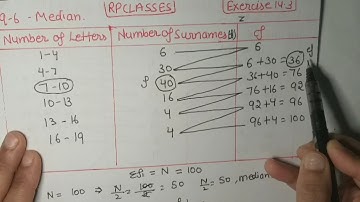 Q-6 - Median. RPCLASSES Exercise 14.3
Number of Letters Number of Surnames(f) cf
1-4 6 6
4-7 30 6+30 = 36 cf
f
7-10 40 36+40 = 76
10-13 16 76+16 = 92
13-16 4 92+4 = 96
16-19 4 96+4 = 100
Σfi = N = 100
N = 100 ⇒ N/2 = 100/2 = 50 N/2 = 50, median